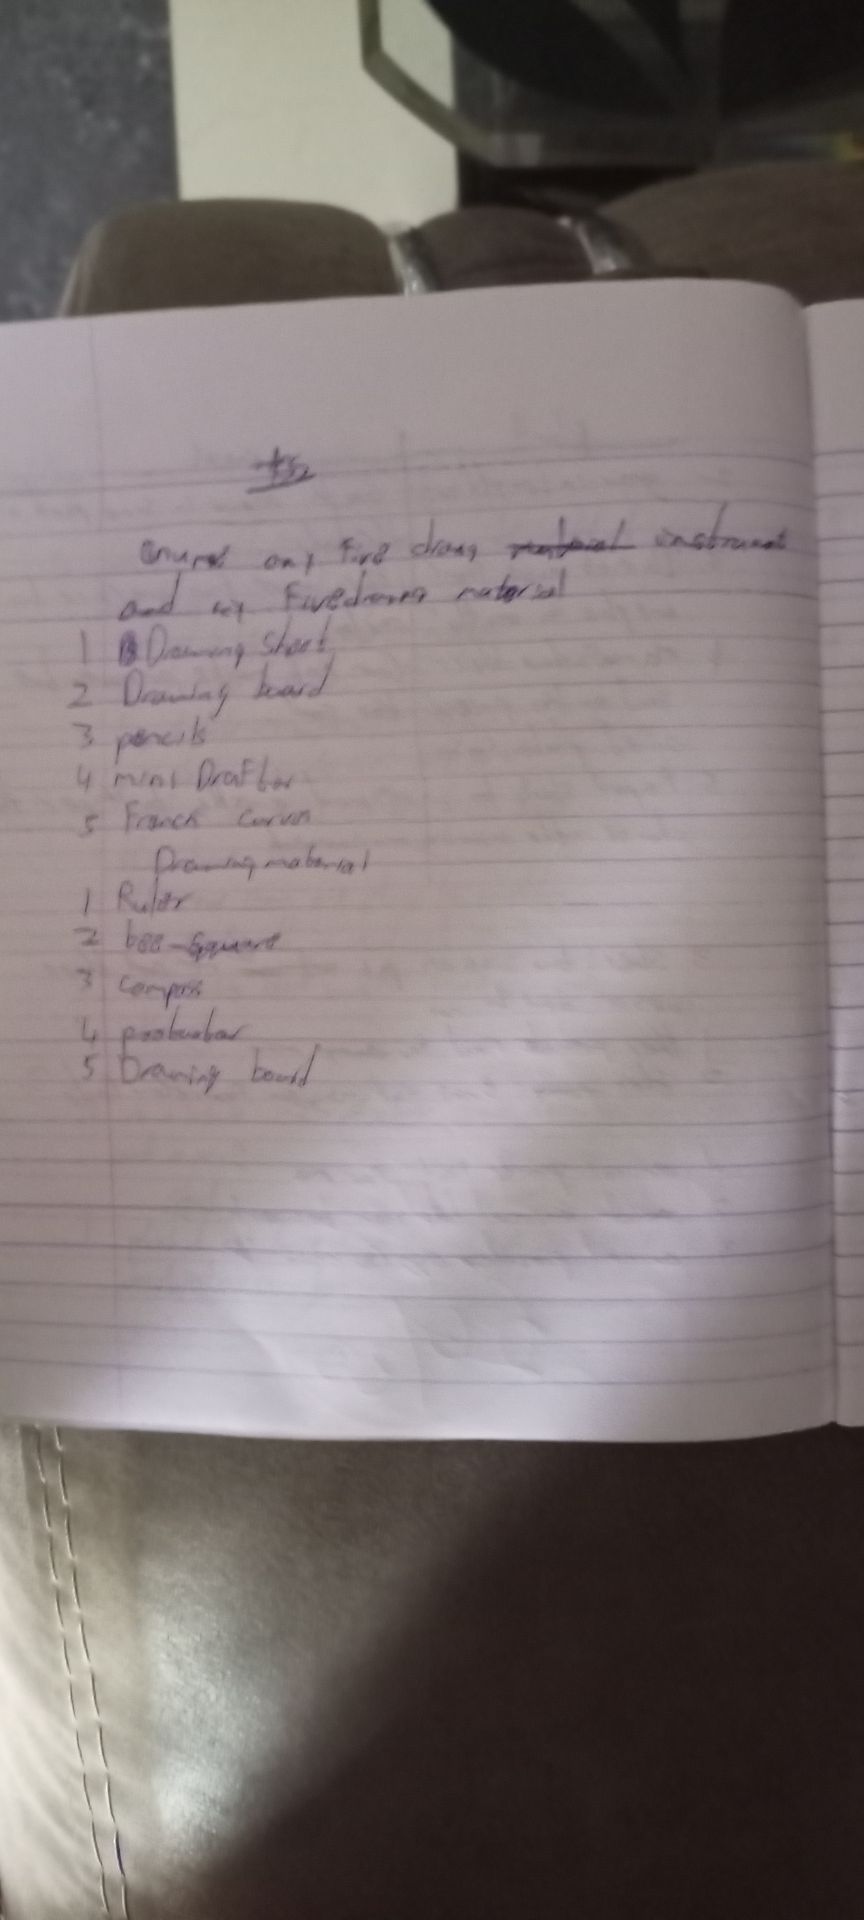 any five drawing instrument
and any Five drawing material
1 Drawing Sheet
2 Drawing board
3 pencils
4 mini Drafter
5 French curves
Drawing material
1 Ruler
2 tee-Square
3 compass
4 protractor
5 Drawing board